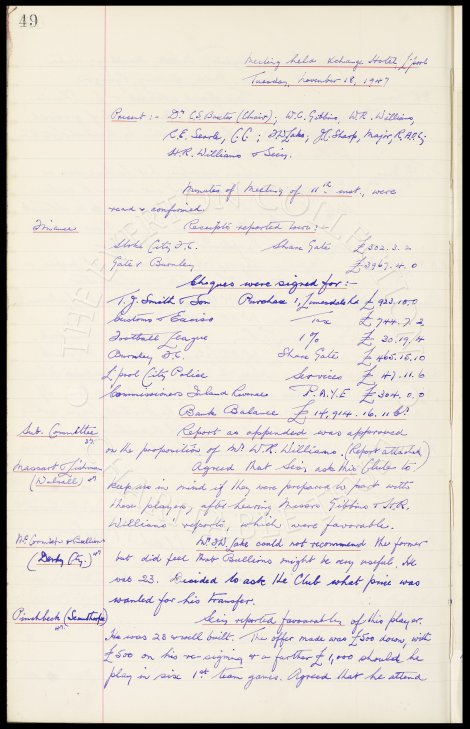 49
Meeting held Xchange Hotel L'pool
Tuesday, November 18, 1947
Present :- Dr. C.S. Baxter (Chair); W.C. Gibbins, W.R. Williams,
C.E. Searle, G.G; D.W. Lake, J.C. Sharp, Major, R.A.C.;
H.R. Williams & Secy.
Minutes of Meeting of 11th inst., were
read & confirmed.
Finance
Receipts reported were :-
Stoke City F.C. Share Gate £302.3.2
Gate v Burnley £3967.4.0
Cheques were signed for :-
T.J. Smith & Son Purchase, £923.10.0
Customs & Excise Tax £744.7.2
Football League 1% £30.19.4
Burnley F.C. Share Gate £465.15.10
L'pool City Police Services £47.11.6
Commissioners Inland Revenue P.A.Y.E £304.0.0
Bank Balance £14,914.16.11
Sub. Committee
Report as appended was approved
on the proposition of Mr W.R. Williams. (Report attached)
Massart &
(Walsall)
Agreed that Secy. ask this Club to
keep us in mind if they were prepared to part with
these players, after hearing Messrs Gibbins & H.R.
Williams' reports, which were favorable.
McCormick & Bullions
(Derby Cty.)
Mr D.W. Lake could not recommend the former
but did feel that Bullions might be very useful. He
was 23. Decided to ask the Club what price was
wanted for his transfer.
Pinchbeck (Scunthorpe)
Secy. reported favorably of this player.
He was 23 & well built. The offer made was £500 down, with
£500 on his re-signing & a further £1,000 should he
play in six 1st team games. Agreed that he attend
THE EVERTON COLLECTION